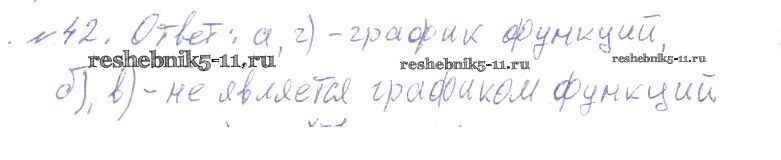 №42. Ответ: а, г) - график функций,
reshebnik5-11.ru reshebnik5-11.ru reshebnik5-11.ru
б), в) - не является графиком функций